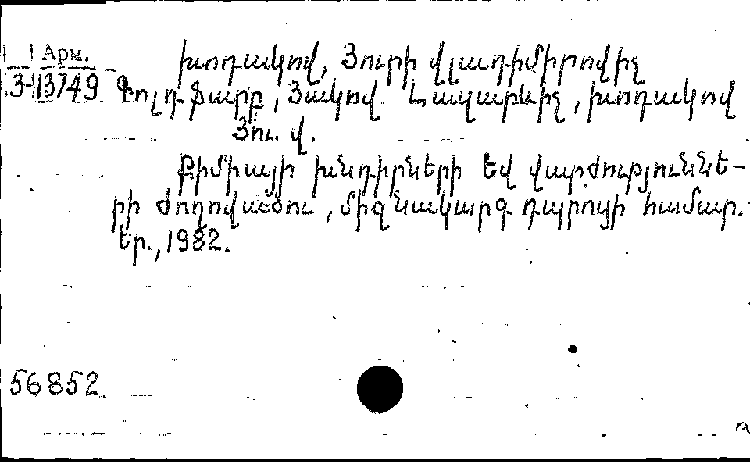 Арм.
3-13749
Խոդակով, Յուրի Վլադիմիրովիչ
Գոլդֆարբ, Յակով Լազարևիչ, Խոդակով
Յու. Վ.
Քիմիայի խնդիրների եվ վարժություննե-
րի ժողովածու, միջնակարգ դպրոցի համար.
Եր., 1982.
56852